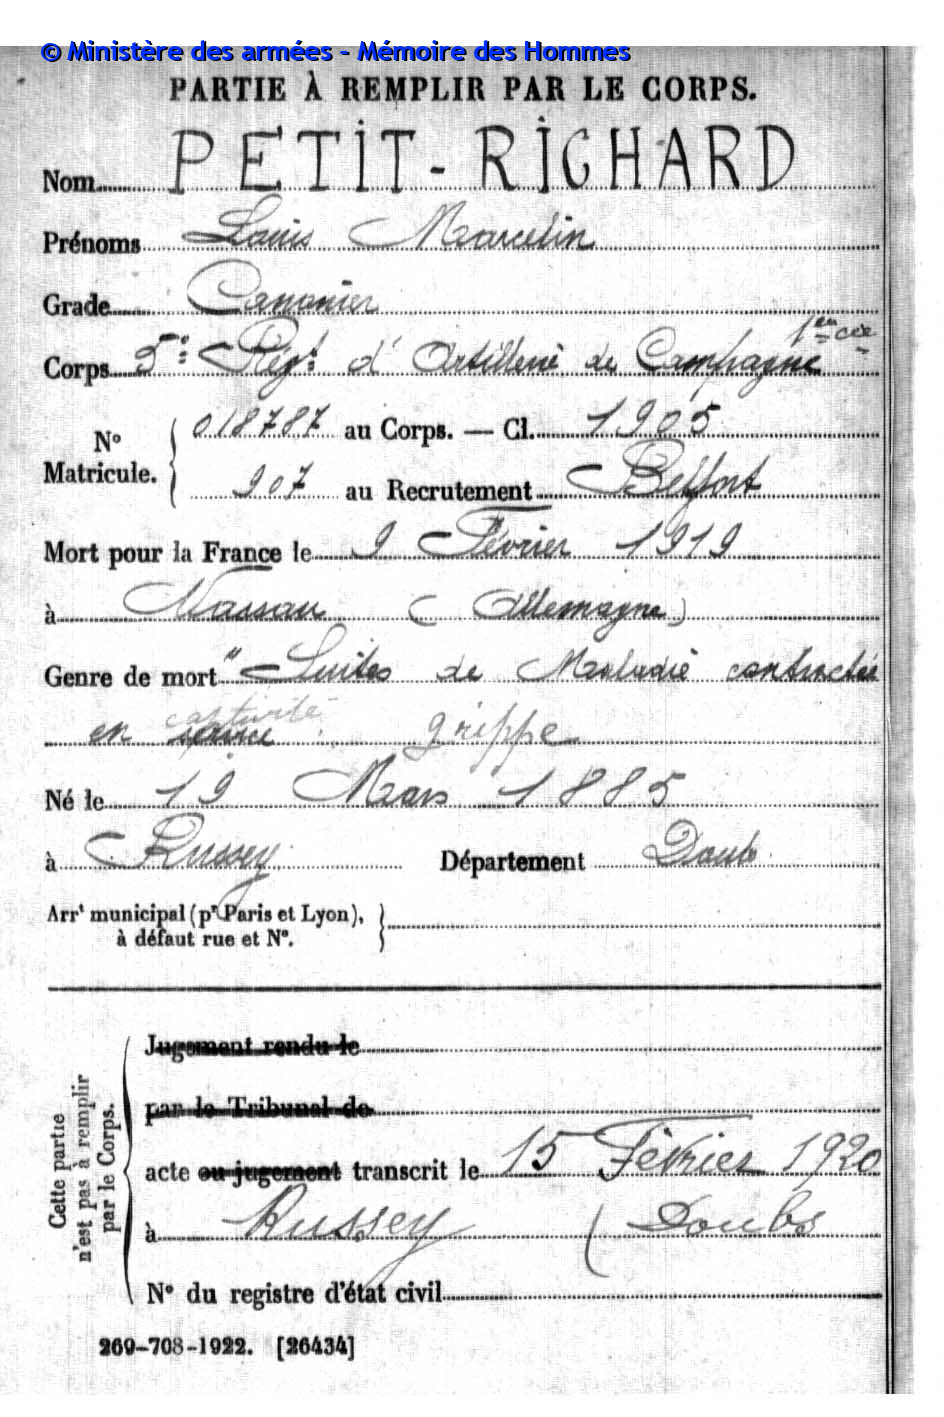 © Ministère des armées - Mémoire des Hommes
PARTIE À REMPLIR PAR LE CORPS.
Nom PETIT-RICHARD
Prénoms Louis Marcelin
Grade Canonier
1en cer
Corps 5e Régt d'Artillerie de Campagne
N° Matricule. 018787 au Corps. — Cl. 1905
907 au Recrutement Belfort
Mort pour la France le 9 Février 1919
à Nassau (Allemagne)
Genre de mort " Suites de Maladie contractée
captivité
en service grippe
Né le 19 Mars 1885
à Russey Département Doubs
Arrt municipal (pr Paris et Lyon),
à défaut rue et N°.
Cette partie
n'est pas à remplir
par le Corps.
Jugement rendu le
par le Tribunal de
acte ou jugement transcrit le 15 Février 1920
à Russey (Doubs
N° du registre d'état civil
269-708-1922. [26434]